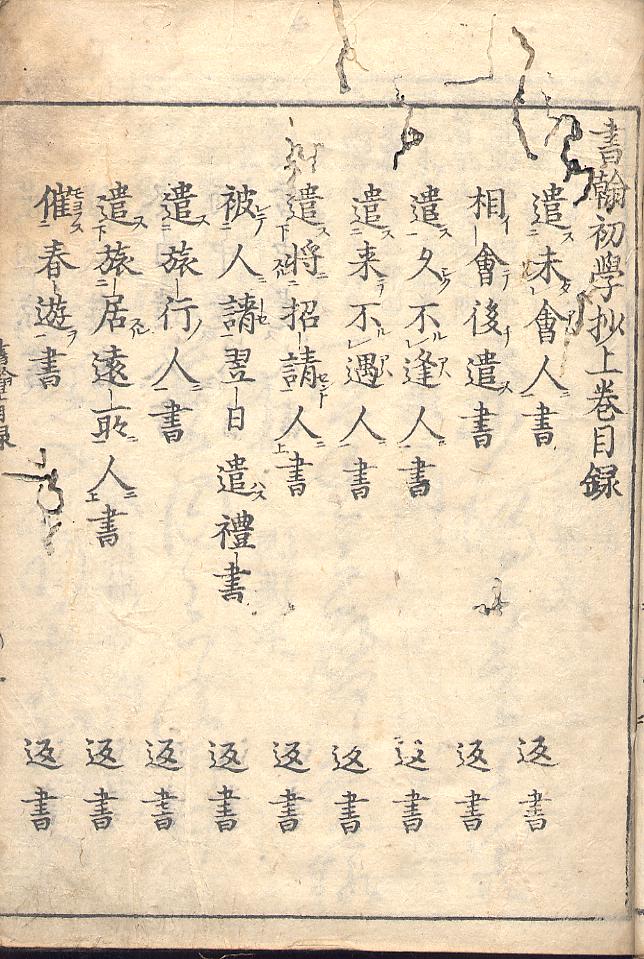 書翰初學抄上巻目録
遣未會人書 返書
相會後遣書 返書
遣久不逢人書 返書
遣来不遇人書 返書
遣将招請人書 返書
被人請翌日遣禮書 返書
遣旅行人書 返書
遣旅居遠所人書 返書
催春遊書 返書